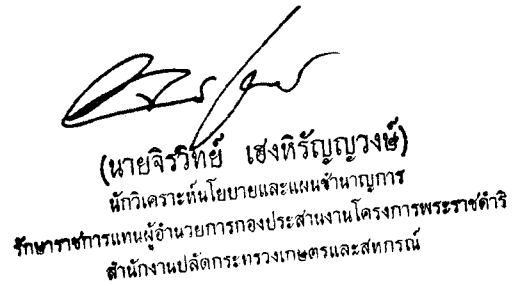 (นายจิรวิทย์ เฮงหิรัญญวงษ์)
นักวิเคราะห์นโยบายและแผนชำนาญการ
รักษาราชการแทนผู้อำนวยการกองประสานงานโครงการพระราชดำริ
สำนักงานปลัดกระทรวงเกษตรและสหกรณ์